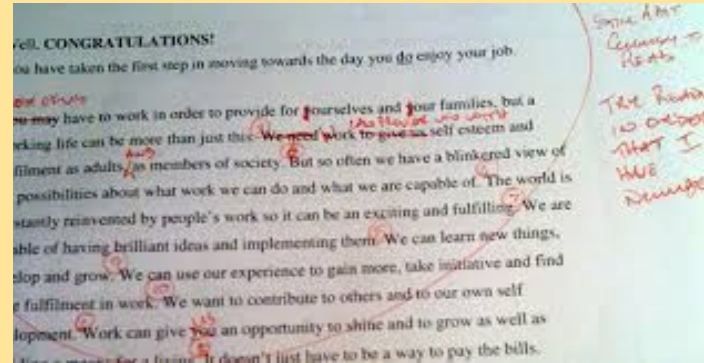 Well. CONGRATULATIONS!
you have taken the first step in moving towards the day you do enjoy your job.
may have to work in order to provide for yourselves and your families, but a
working life can be more than just this. We need work to give us self esteem and
fulfilment as adults, as members of society. But so often we have a blinkered view of
possibilities about what work we can do and what we are capable of. The world is
constantly reinvented by people's work so it can be an exciting and fulfilling. We are
able of having brilliant ideas and implementing them. We can learn new things,
develop and grow. We can use our experience to gain more, take initiative and find
fulfilment in work. We want to contribute to others and to our own self
development. Work can give you an opportunity to shine and to grow as well as
a means for a living. It doesn't just have to be a way to pay the bills.
AND
US
TRY READ
IN ORDER
THAT I
HAVE